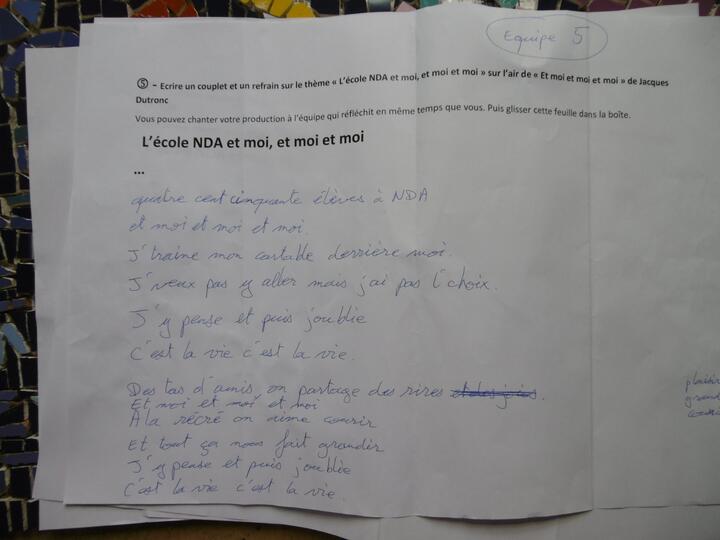 Equipe 5
⑤ - Ecrire un couplet et un refrain sur le thème « L'école NDA et moi, et moi et moi » sur l'air de « Et moi et moi et moi » de Jacques
Dutronc
Vous pouvez chanter votre production à l'équipe qui réfléchit en même temps que vous. Puis glisser cette feuille dans la boîte.
L'école NDA et moi, et moi et moi
...
quatre cent cinquante élèves à NDA
et moi et moi et moi.
J'traîne mon cartable derrière moi.
J'veux pas y aller mais j'ai pas l'choix.
J'y pense et puis j'oublie
C'est la vie c'est la vie.
Des tas d'amis, on partage des rires et des joies.
Et moi et moi et moi
A la récré on aime courir
Et tout ça nous fait grandir
J'y pense et puis j'oublie
C'est la vie c'est la vie.